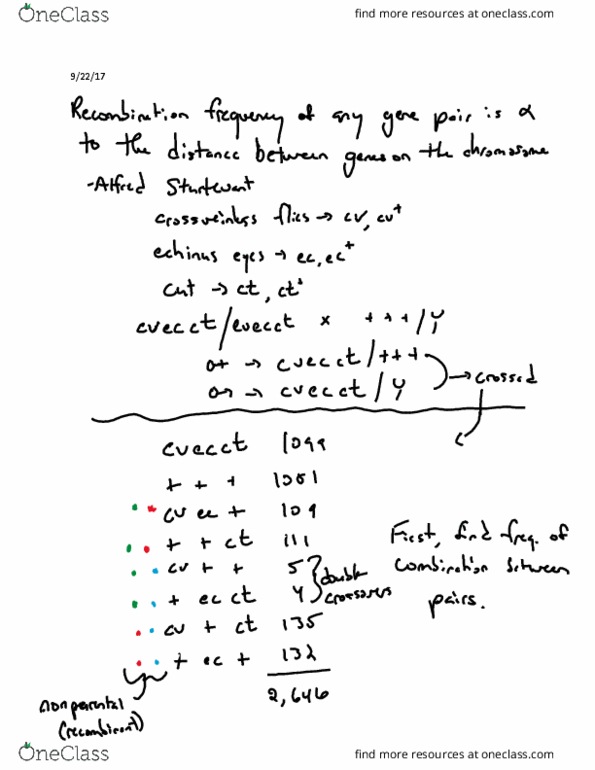 OneClass
find more resources at oneclass.com
9/22/17
Recombination frequency of any gene pair is α
to the distance between genes on the chromosome
-Alfred Sturtevant
crossveinless flies → cv, cv+
echinus eyes → ec, ec+
cut → ct, ct+
cvecct/cvecct × +++/Y
→ cvecct/+++
→ cvecct/Y
→ crossed
cvecct 1099
+ + + 1051
cv ec + 109
+ + ct 111
cv + + 5
+ ec ct 4
double crossovers
cv + ct 135
+ ec + 132
2,646
First, find freq. of
combination between
pairs.
nonparental
(recombinant)
OneClass
find more resources at oneclass.com